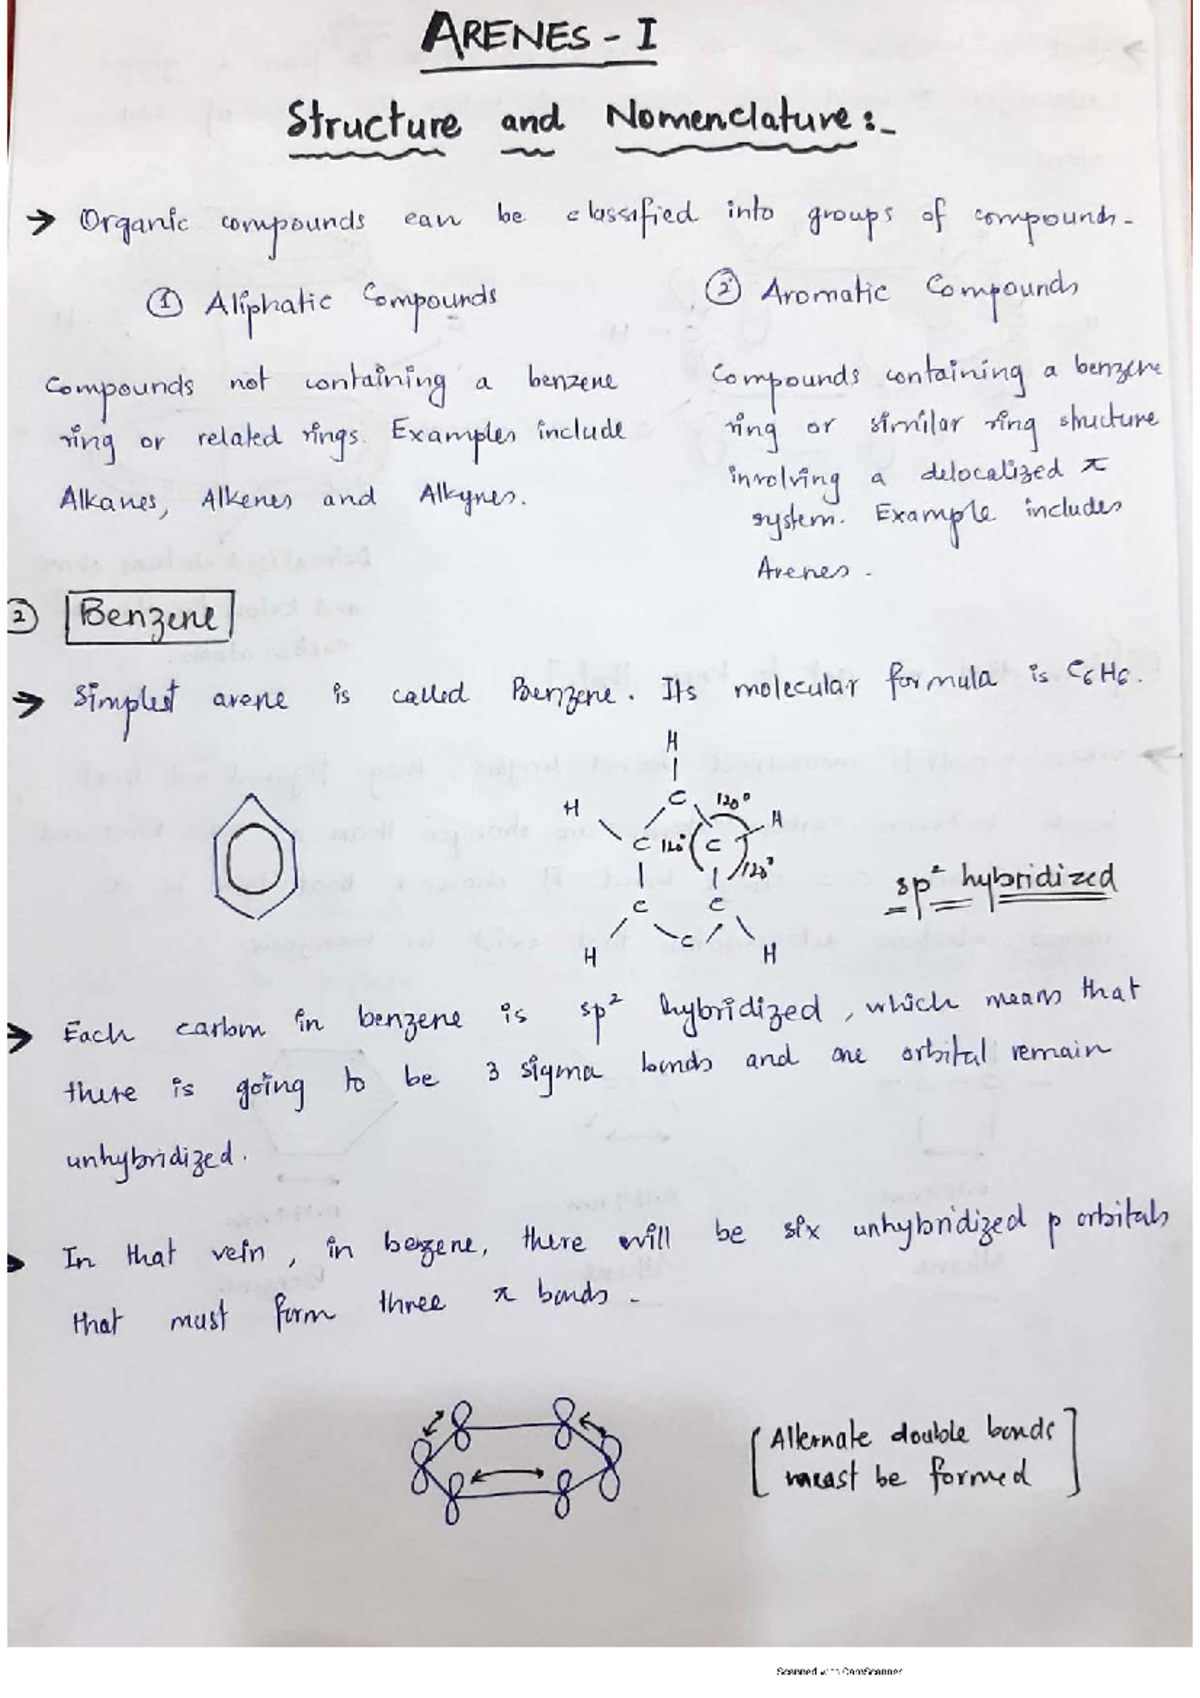 ARENES - I
Structure and Nomenclature :-
→ Organic compounds can be classified into groups of compounds -
① Aliphatic Compounds
Compounds not containing a benzene
ring or related rings. Examples include
Alkanes, Alkenes and Alkynes.
② Aromatic Compounds
Compounds containing a benzene
ring or similar ring structure
involving a delocalized π
system. Example includes
Arenes -
② Benzene
→ Simplest arene is called Benzene. Its molecular formula is C₆H₆.
H
H C 120° H
C 120° C 120°
C C
H C H
sp² hybridized
→ Each carbon in benzene is sp² hybridized, which means that
there is going to be 3 sigma bonds and one orbital remain
unhybridized.
In that vein, in benzene, there will be six unhybridized p orbitals
that must form three π bonds -
[Alternate double bonds
must be formed]
Scanned with CamScanner